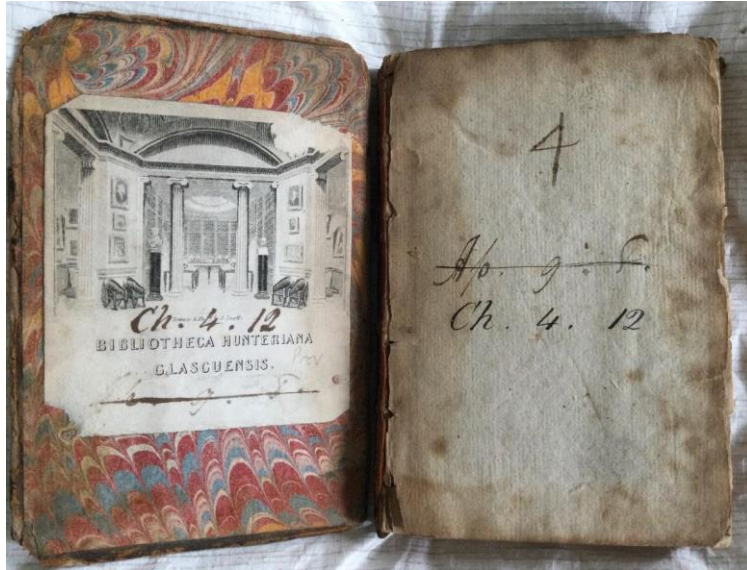 Ch. 4. 12
BIBLIOTHECA HUNTERIANA
GLASGUENSIS.
4
Ap. 9. 8.
Ch. 4. 12